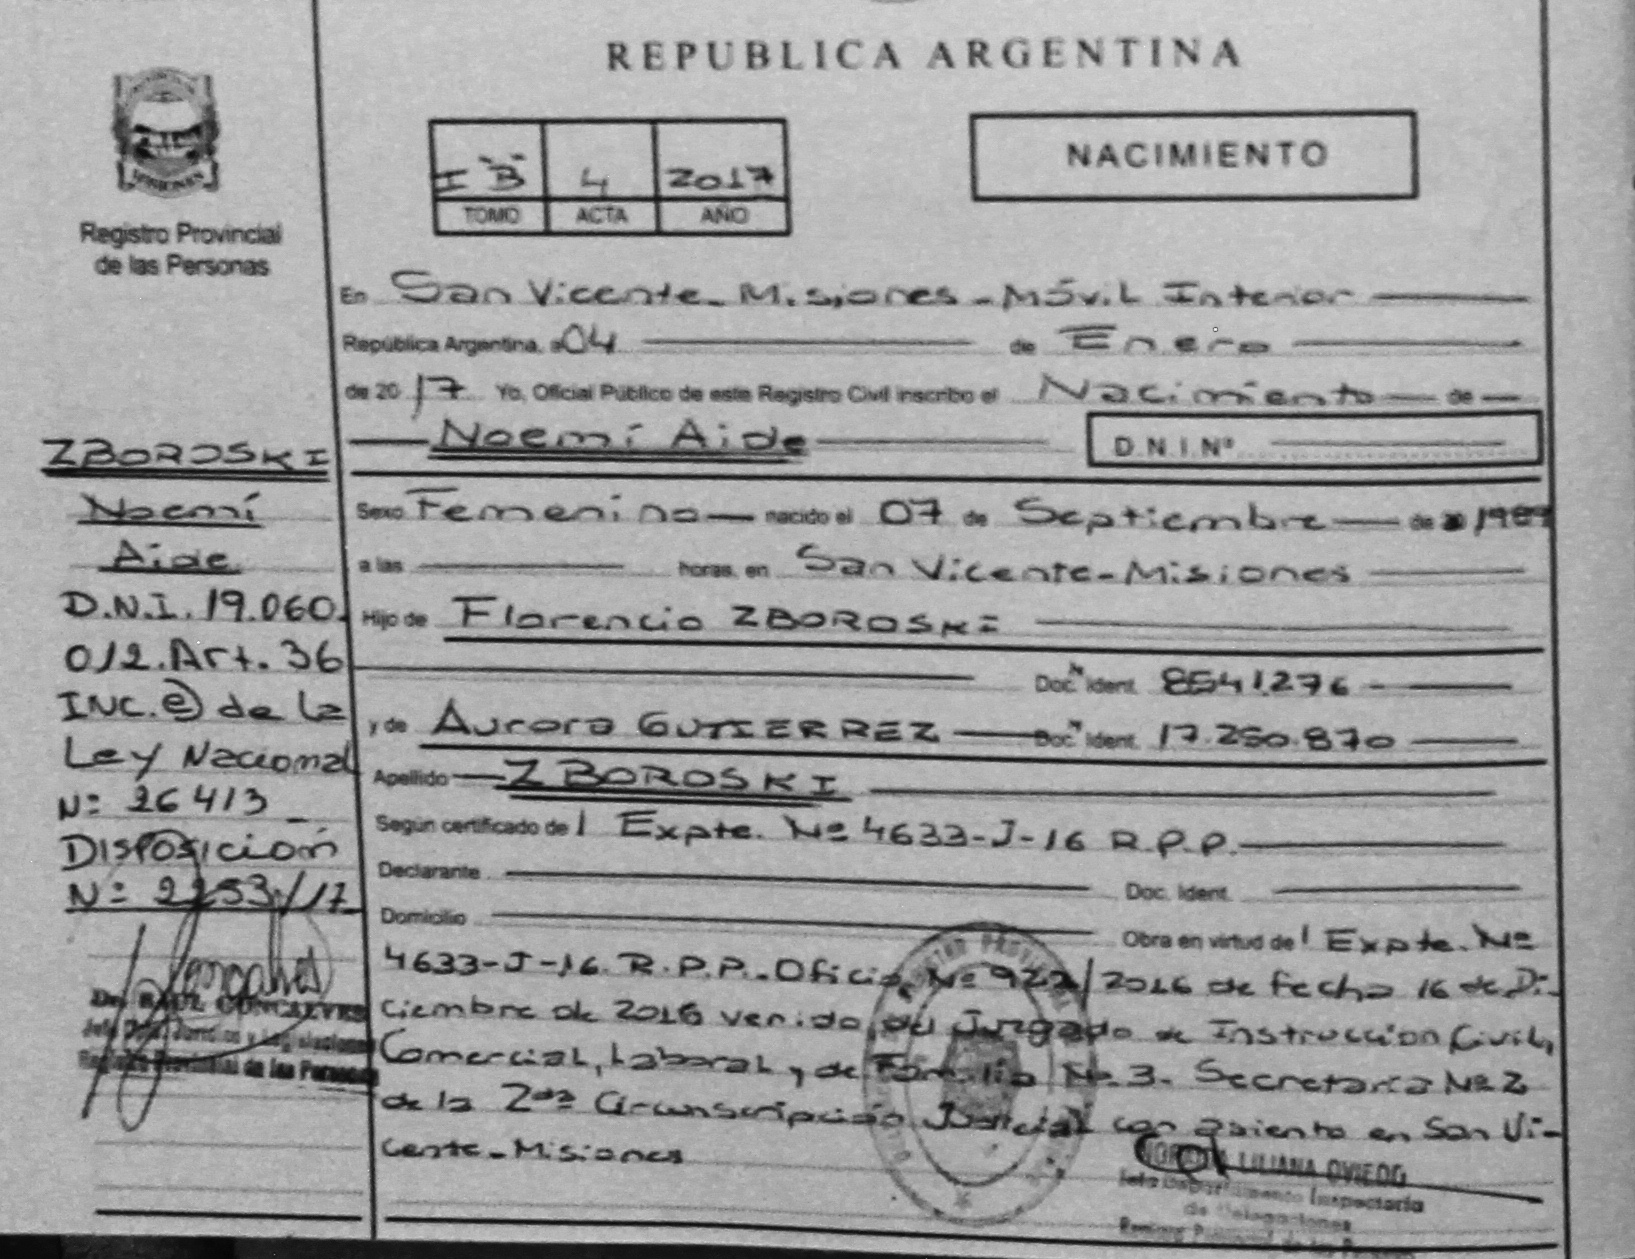 REPUBLICA ARGENTINA
I "B" 4 2017
TOMO ACTA AÑO
NACIMIENTO
MISIONES
Registro Provincial
de las Personas
ZBOROSKI
Noemí
Aide
D.N.I. 19.060.
012. Art. 36
INC. e) de la
Ley Nacional
Nº 26413
Disposición
Nº 2253/17
Dr. RAUL GONCALVES
Jefe Dpto. Jurídico y Legislaciones
Registro Provincial de las Personas
En San Vicente - Misiones - Móvil Interior
República Argentina, a 04 de Enero
de 2017 Yo, Oficial Público de este Registro Civil inscribo el Nacimiento de
Noemí Aide D.N.I.Nº
Sexo Femenino nacido el 07 de Septiembre de
a las horas, en San Vicente - Misiones
Hijo de Florencio ZBOROSKI
Doc. Ident. 8541.276
y de Aurora GUTIERREZ Doc. Ident. 17.250.870
Apellido ZBOROSKI
Según certificado de Expte. Nº 4633-J-16 R.P.P.
Declarante Doc. Ident.
Domicilio Obra en virtud de Expte. Nº
4633-J-16. R.P.P. - Oficio Nº 922/2016 de fecha 16 de Di-
ciembre de 2016 venido del Juzgado de Instrucción Civil,
Comercial, Laboral y de Familia Nº 3. Secretaría Nº 2
de la 2da Circunscripción Judicial con asiento en San Vi-
cente - Misiones
LILIANA OVIEDO
Jefa Departamento Inspectoría
de Delegaciones